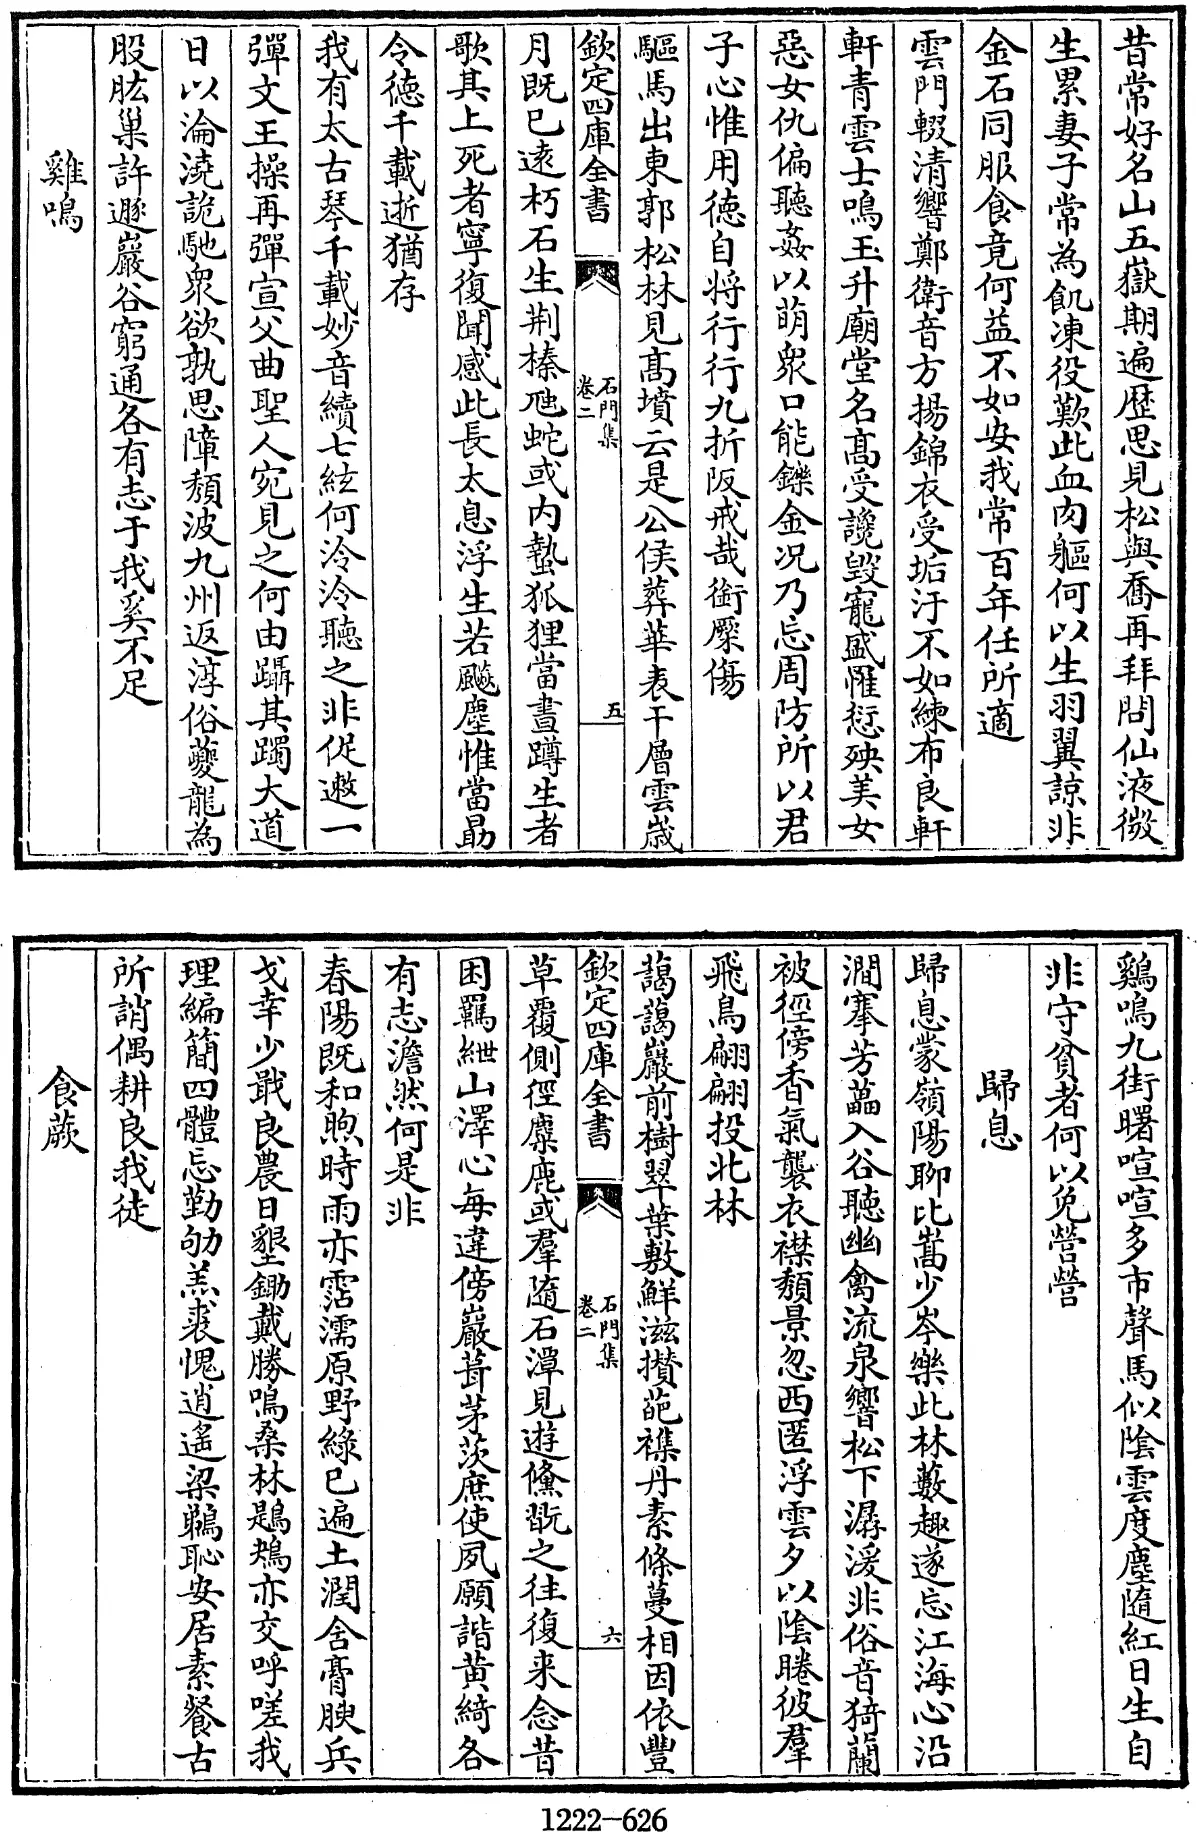 昔常好名山五嶽期遍歴思見松與喬再拜問仙液微
生累妻子常為飢凍役歎此血肉軀何以生羽翼諒非
金石同服食竟何益不如安我常百年任所適
雲門輟清響鄭衛音方揚錦衣受垢汙不如練布良軒
軒青雲士鳴玉升廟堂名髙受讒毁寵盛罹愆殃美女
惡女仇偏聽姦以萌衆口能鑠金况乃忘周防所以君
子心惟用徳自将行行九折阪戒哉銜橜傷
驅馬出東郭松林見髙墳云是公侯葬華表干層雲嵗
欽定四庫全書
石門集
卷二
五
月既已逺朽石生荆榛虺蛇或内蟄狐狸當晝蹲生者
歌其上死者寧復聞感此長太息浮生若飈塵惟當勗
令徳千載逝猶存
我有太古琴千載妙音續七絃何泠泠聽之非促遬一
彈文王操再彈宣父曲聖人宛見之何由躡其躅大道
日以淪澆詭馳衆欲孰思障頽波九州返淳俗夔龍為
股肱巢許遯巖谷窮通各有志于我奚不足
雞鳴
鷄鳴九街曙喧喧多市聲馬似陰雲度塵隨紅日生自
非守貧者何以免營營
歸息
歸息蒙嶺陽聊比嵩少岑樂此林藪趣遂忘江海心沿
澗搴芳藟入谷聽幽禽流泉響松下潺湲非俗音猗蘭
被徑傍香氣襲衣襟頽景忽西匿浮雲夕以陰睠彼羣
飛鳥翩翩投北林
藹藹巖前樹翠葉敷鮮滋攅葩襍丹素條蔓相因依豐
欽定四庫全書
石門集
卷二
六
草覆側徑麋鹿或羣隨石潭見遊鯈翫之往復来念昔
困羈紲山澤心每違傍巖葺茅茨庶使夙願諧黄綺各
有志澹然何是非
春陽既和煦時雨亦霑濡原野緑已遍土潤含膏腴兵
戈幸少戢良農日墾鋤戴勝鳴桑林鶗鴂亦交呼嗟我
理編簡四體忘勤劬羔裘愧逍遙梁鵜恥安居素餐古
所誚偶耕良我徒
食蕨
1222-626